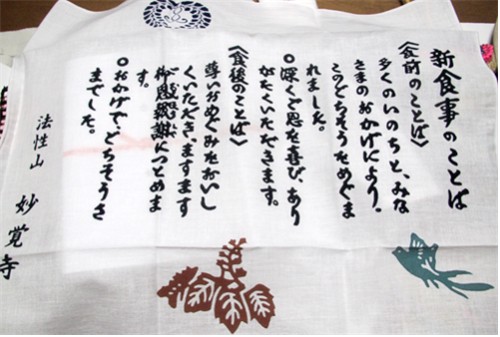 新食事のことば
〈食前のことば〉
多くのいのちと、みな
さまのおかげにより、
このごちそうをめぐま
れました。
◎深くご恩を喜び、あり
がたくいただきます。
〈食後のことば〉
尊いおめぐみをおいし
くいただき、ますます
御恩報謝につとめま
す。
◎おかげで、ごちそうさ
までした。
法性山 妙覚寺